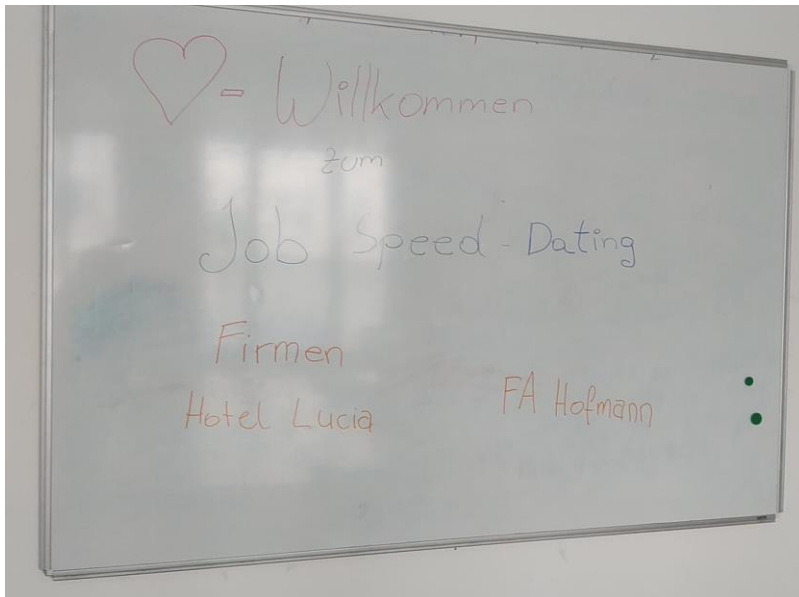 ♡- Willkommen
zum
Job Speed-Dating
Firmen
Hotel Lucia
FA Hofmann